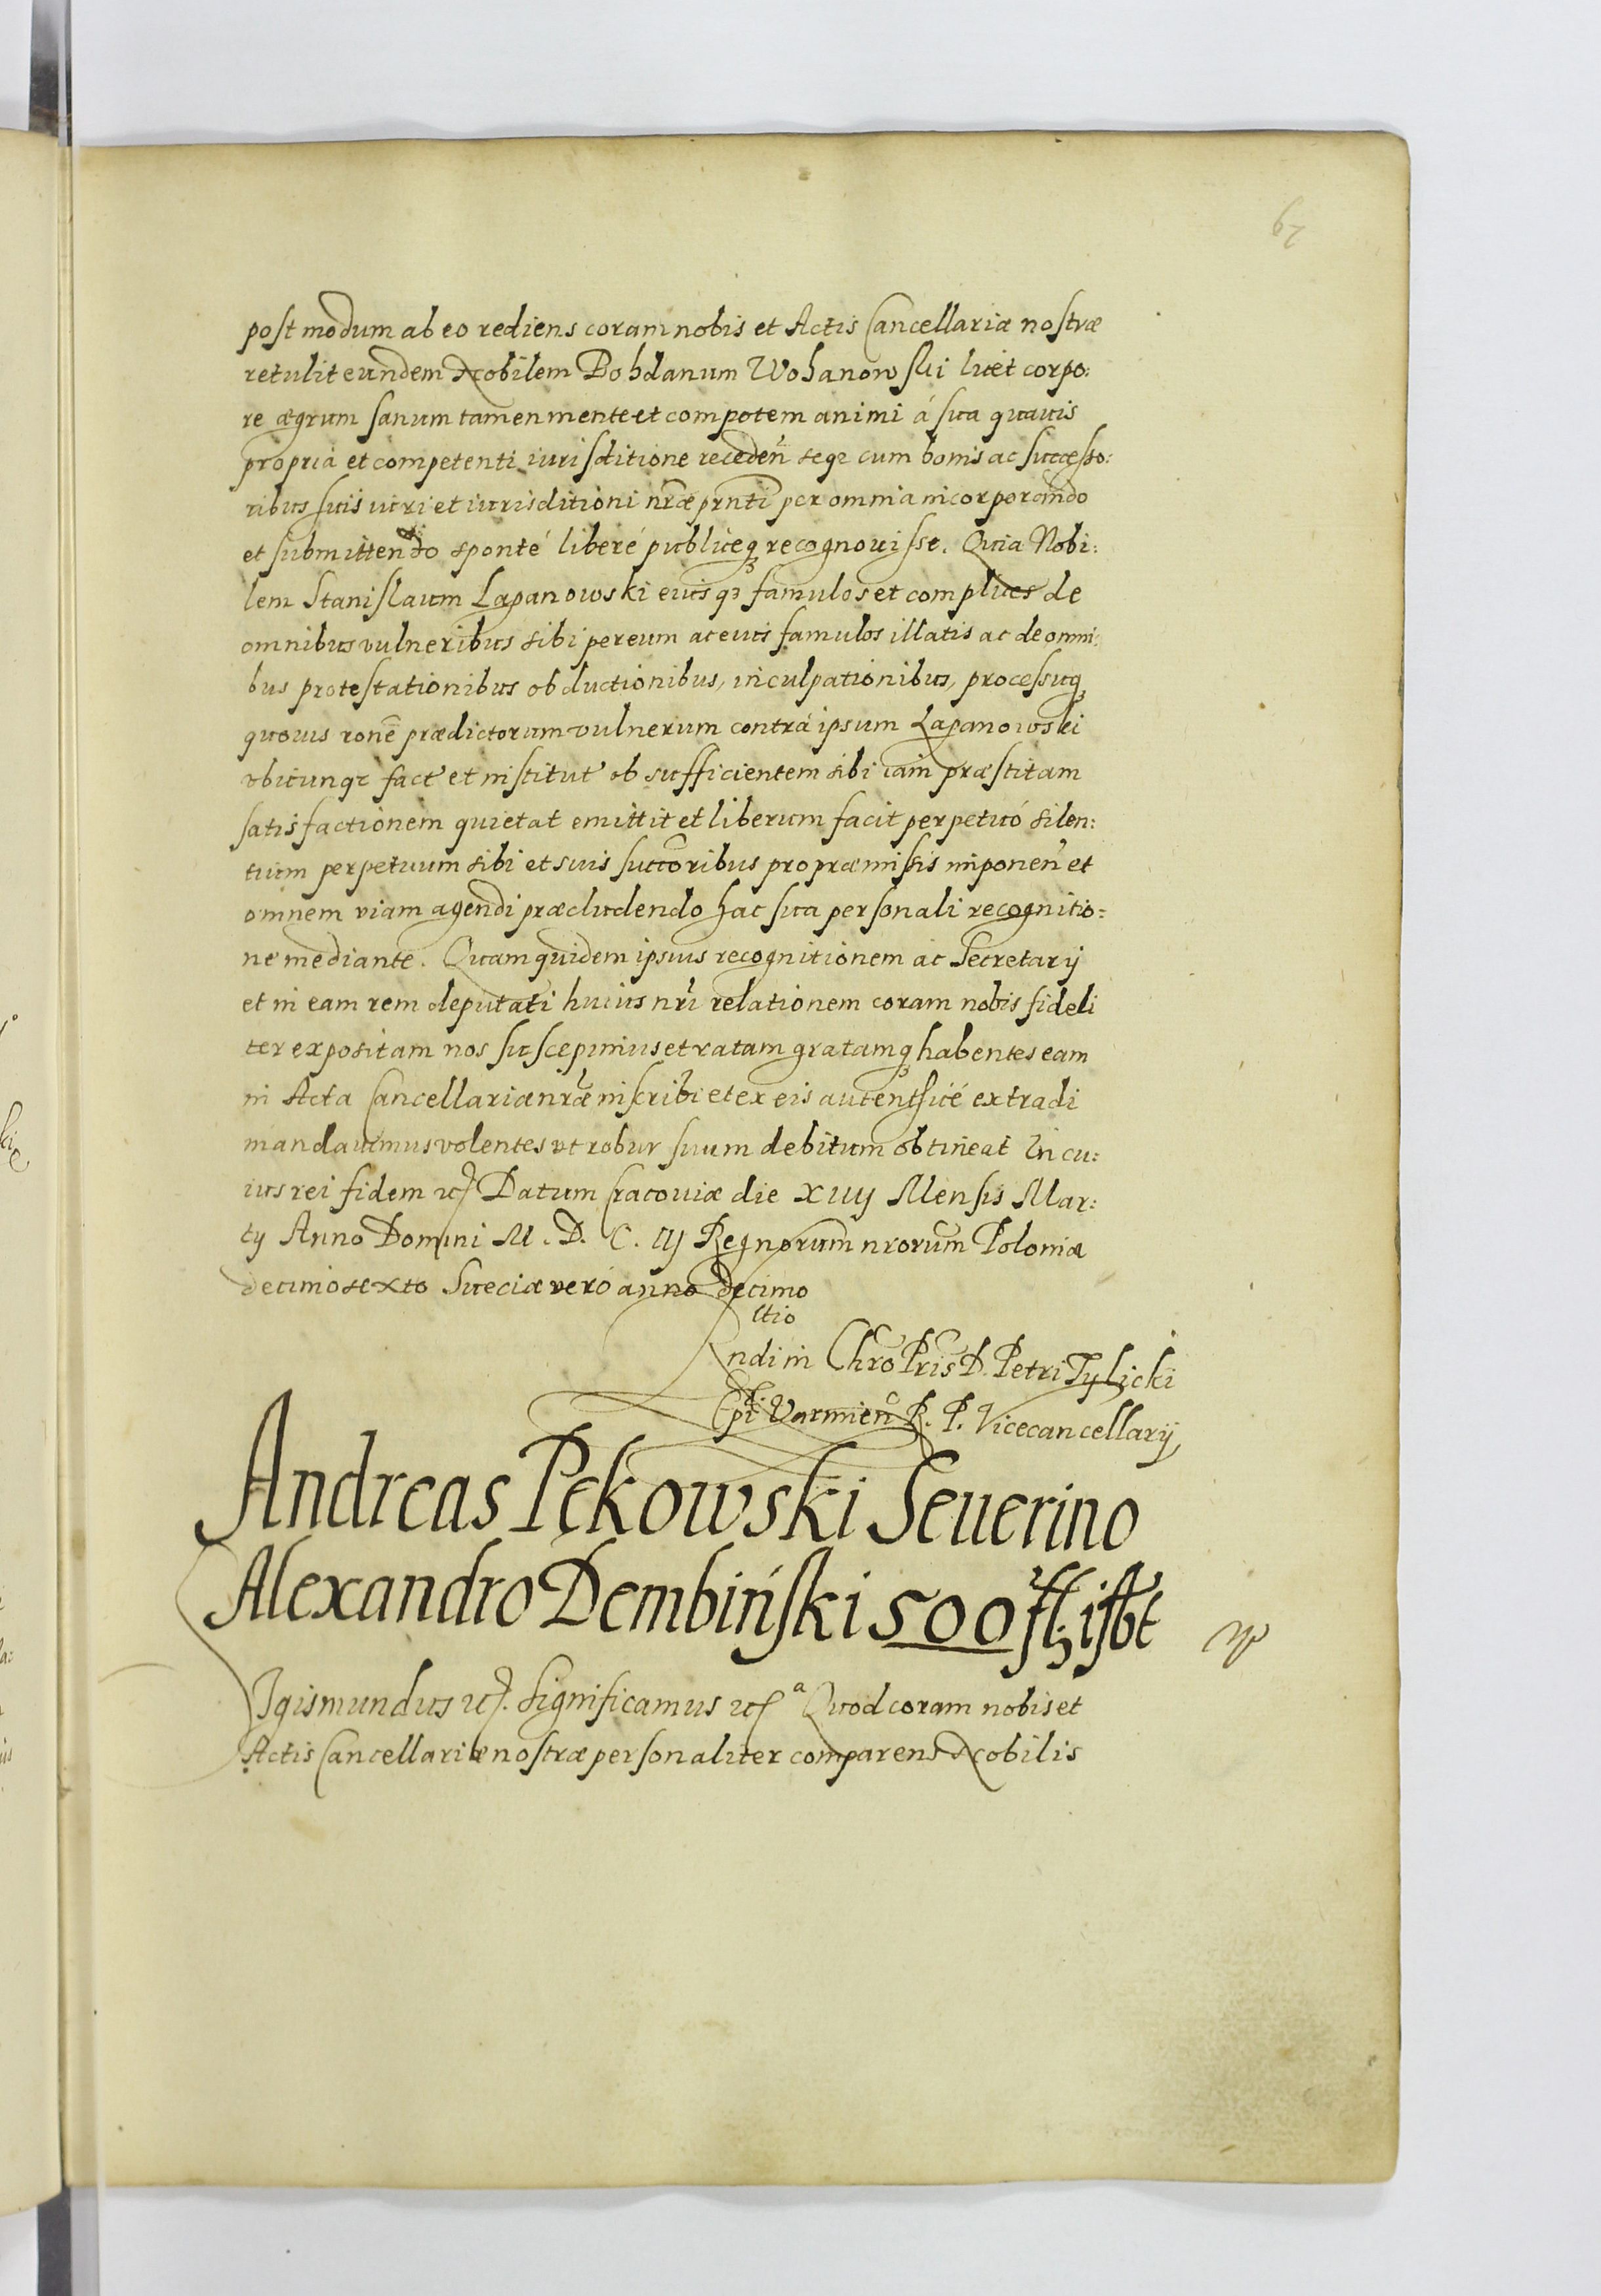 67
post modum ab eo rediens coram nobis et Actis Cancellariæ nostræ
retulit eundem Nobilem Bohdanum Wohanowski licet corpo:
re ægrum sanum tamen mente et compotem animi á sua quauis
propria et competenti iurisditione receden̄ seqꝫ cum bonis ac successo:
ribus suis iuri et iurisditioni nr̄æ prn̄ti per omnia incorporando
et submittendo sponté liberé publiceqꝫ recognouisse. Quia Nobi:
lem Stanislaum Lapanowski eiusqꝫ famulos et complices de
omnibus vulneribus sibi per eum ac eius famulos illatis ac de omni:
bus protestationibus obductionibus, inculpationibus, processuqꝫ
quouis ronē prædictorum vulnerum contrá ipsum Lapanowski
vbicunqꝫ fact̄ et institut̄ ob sufficientem sibi iam præstitam
satisfactionem quietat emittit et liberum facit perpetuó silen:
tium perpetuum sibi et suis succoribus pro præmissis imponen̄ et
omnem viam agendi præcludendo hac sua personali recognitio:
ne mediante. Quam quidem ipsius recognitionem ac Secretarij
et in eam rem deputati huius nr̄i relationem coram nobis fideli
ter expositam nos suscepimus et ratam gratamqꝫ habentes eam
in Acta Cancellariæ nr̄æ inscribi et ex eis autenthicé extradi
mandauimus volentes vt robur suum debitum obtineat In cu:
ius rei fidem etc Datum Cracouiæ die XIIIJ Mensis Mar:
tij Anno Domini M. D. C. IIJ Regnorum nrorum Poloniæ
decimosexto Sueciæ veró anno decimo
Rndi in Chro Pris D. Petri Tylicki
Epi Varmien̄ R. P. Vicecancellarij
Andreas Pękowski Seuerino
Alexandro Dembiński 500 fl: isbt
Sigismundus etc. Significamus etc a Quod coram nobis et
Actis Cancellariæ nostræ personaliter comparens Nobilis